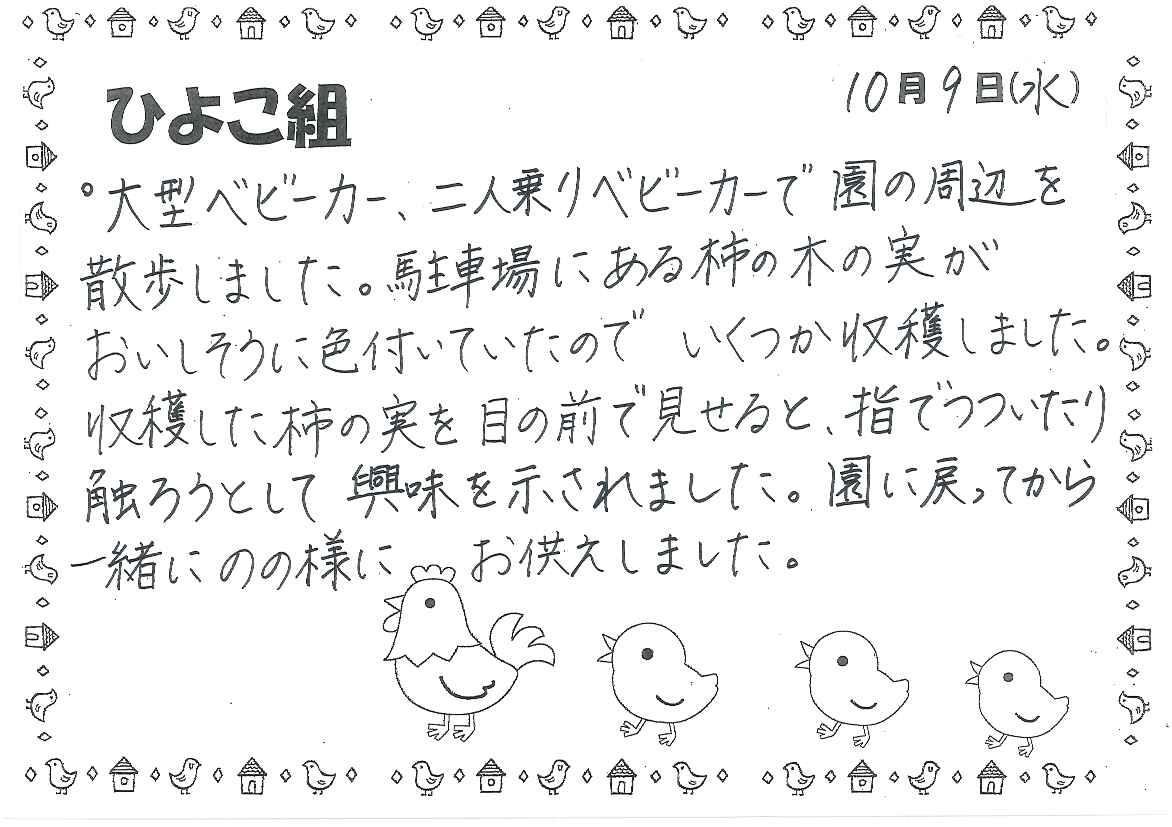 ひよこ組
10月9日(水)
°大型ベビーカー、二人乗りベビーカーで園の周辺を
散歩しました。駐車場にある柿の木の実が
おいしそうに色付いていたので いくつか収穫しました。
収穫した柿の実を目の前で見せると、指でつついたり
触ろうとして興味を示されました。園に戻ってから
一緒にののの様に お供えしました。